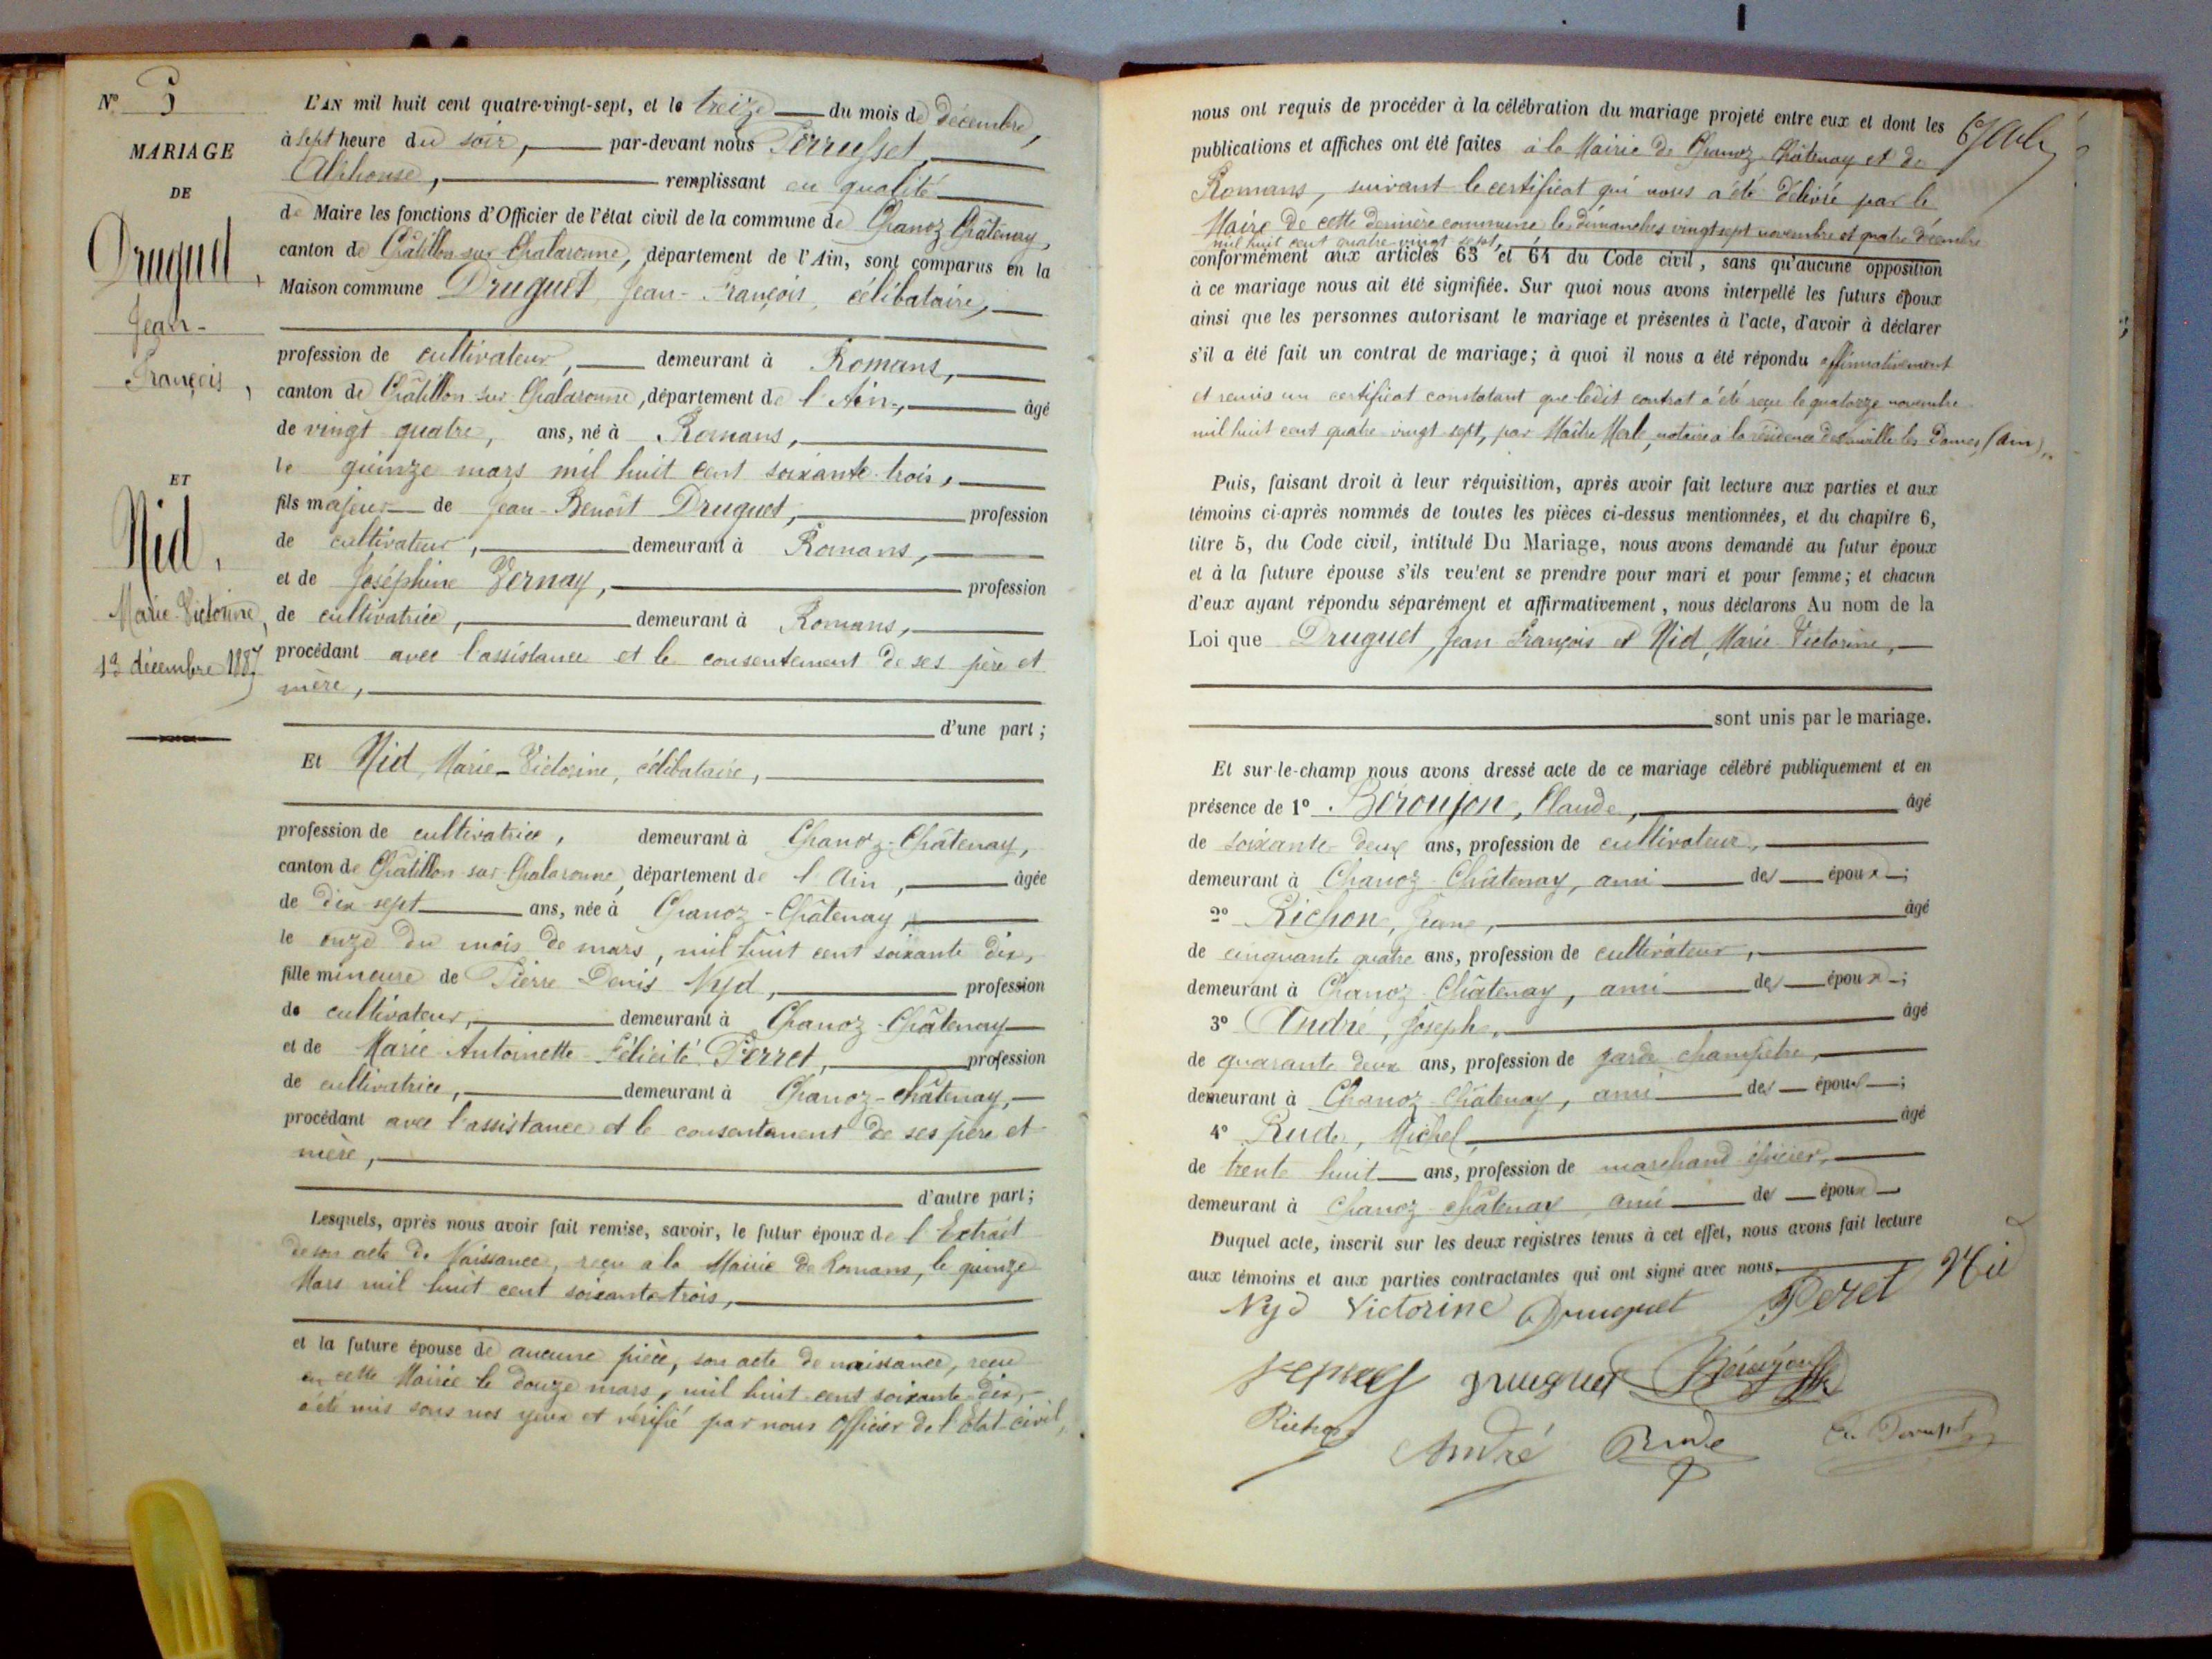 N° 5
MARIAGE
DE
Druguet,
Jean-
François,
ET
Nid,
Marie-Victorine,
13 décembre 1887
L'AN mil huit cent quatre-vingt-sept, et le treize du mois de décembre,
à sept heure du soir, par-devant nous Perrusset
Alphonse, remplissant en qualité
de Maire les fonctions d'Officier de l'état civil de la commune de Chanoz Châtenay,
canton de Châtillon sur Chalaronne, département de l'Ain, sont comparus en la
Maison commune Druguet Jean-François, célibataire,
profession de cultivateur, demeurant à Romans,
canton de Châtillon sur Chalaronne, département de l'Ain, âgé
de vingt quatre, ans, né à Romans,
le quinze mars mil huit cent soixante trois,
fils majeur de Jean-Benoît Druguet, profession
de cultivateur, demeurant à Romans,
et de Joséphine Vernay, profession
de cultivatrice, demeurant à Romans,
procédant avec l'assistance et le consentement de ses père et
mère,
d'une part;
Et Nid, Marie-Victorine, célibataire,
profession de cultivatrice, demeurant à Chanoz-Châtenay,
canton de Châtillon sur Chalaronne, département de l'Ain, âgée
de dix sept ans, née à Chanoz-Châtenay,
le onze du mois de mars, mil huit cent soixante dix,
fille mineure de Pierre Denis Nyd, profession
de cultivateur, demeurant à Chanoz-Châtenay
et de Marie Antoinette Félicité Perret, profession
de cultivatrice, demeurant à Chanoz-Châtenay,
procédant avec l'assistance et le consentement de ses père et
mère,
d'autre part;
Lesquels, après nous avoir fait remise, savoir, le futur époux de l'Extrait
de son acte de Naissance, reçu à la Mairie de Romans, le quinze
Mars mil huit cent soixante trois,
et la future épouse de aucune pièce, son acte de naissance, reçu
en cette Mairie le douze mars, mil huit cent soixante-dix,
a été mis sous nos yeux et vérifié par nous Officier de l'Etat-civil,
nous ont requis de procéder à la célébration du mariage projeté entre eux et dont les
publications et affiches ont été faites à la Mairie de Chanoz-Châtenay et de
Romans, suivant le certificat qui nous a été délivré par le
Maire de cette dernière commune les dimanches vingt sept novembre et quatre décembre
mil huit cent quatre-vingt-sept,
conformément aux articles 63 et 64 du Code civil, sans qu'aucune opposition
à ce mariage nous ait été signifiée. Sur quoi nous avons interpellé les futurs époux
ainsi que les personnes autorisant le mariage et présentes à l'acte, d'avoir à déclarer
s'il a été fait un contrat de mariage; à quoi il nous a été répondu affirmativement
et remis un certificat constatant que ledit contrat a été reçu le quatorze novembre
mil huit cent quatre-vingt sept, par Maître Merle, notaire à la résidence de Neuville les Dames (Ain),
Puis, faisant droit à leur réquisition, après avoir fait lecture aux parties et aux
témoins ci-après nommés de toutes les pièces ci-dessus mentionnées, et du chapitre 6,
titre 5, du Code civil, intitulé Du Mariage, nous avons demandé au futur époux
et à la future épouse s'ils veulent se prendre pour mari et pour femme; et chacun
d'eux ayant répondu séparément et affirmativement, nous déclarons Au nom de la
Loi que Druguet, Jean François et Nid, Marie Victorine,
sont unis par le mariage.
Et sur-le-champ nous avons dressé acte de ce mariage célébré publiquement et en
présence de 1° Béroujon, Claude, âgé
de soixante-deux ans, profession de cultivateur,
demeurant à Chanoz-Châtenay, ami des époux;
2° Richon, âgé
de cinquante quatre ans, profession de cultivateur,
demeurant à Chanoz-Châtenay, ami des époux;
3° André, Joseph, âgé
de quarante deux ans, profession de garde champêtre,
demeurant à Chanoz Châtenay, ami des époux;
4° Rude, Michel, âgé
de trente huit ans, profession de marchand épicier,
demeurant à Chanoz Châtenay ami des époux
Duquel acte, inscrit sur les deux registres tenus à cet effet, nous avons fait lecture
aux témoins et aux parties contractantes qui ont signé avec nous.
Nyd Victorine Druguet Peret Nid
Vernay Druguet Béroujon
Richon André Rude A. Perrusset